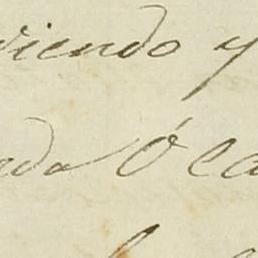 viendo y
ada ó ca